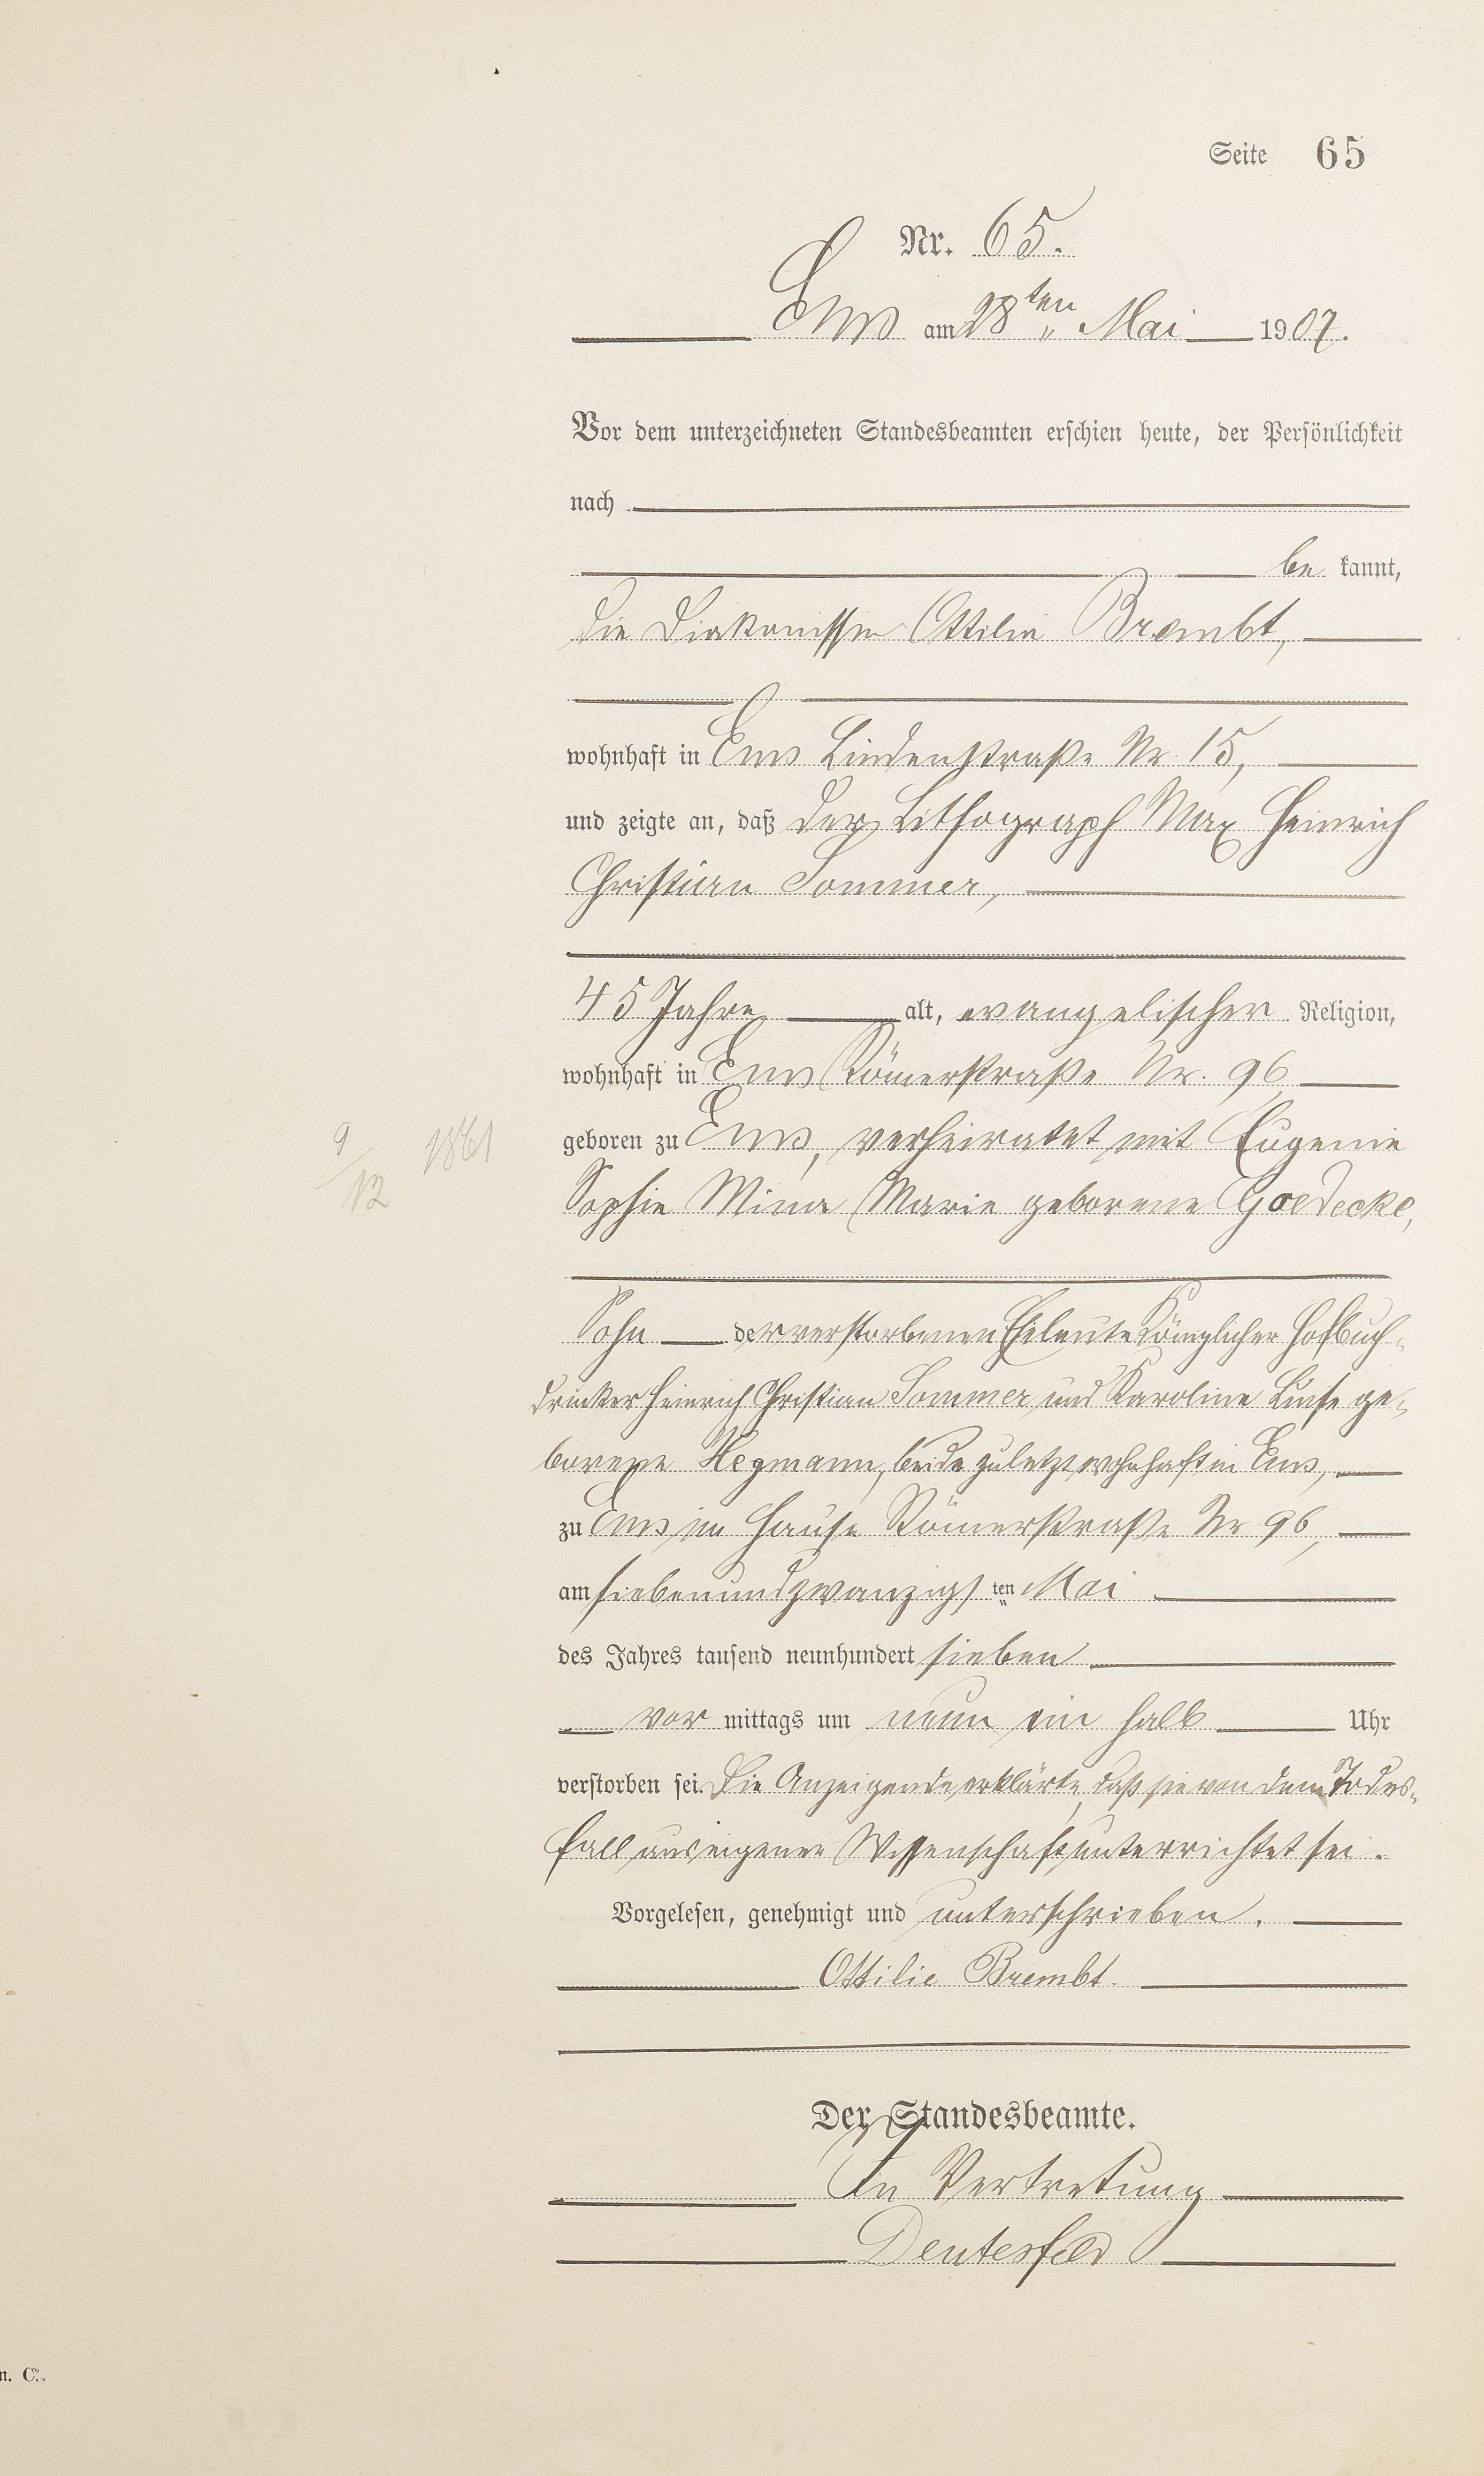 Seite 65
Nr. 65.
Ems am 28ten Mai 1907.
Vor dem unterzeichneten Standesbeamten erschien heute, der Persönlichkeit
nach
be kannt,
die Diakonissin Ottilie Brembt,
wohnhaft in Ems Lindenstraße Nr. 15,
und zeigte an, daß der Lithograph Max Heinrich
Christian Sommer,
45 Jahre alt, evangelischer Religion,
wohnhaft in Ems Römerstraße Nr. 96
9/12 1861
geboren zu Ems, verheiratet mit Eugenie
Sophie Mina Marie geborene Goedecke,
Sohn der verstorbenen Eheleute Königlicher Hofbuch-
drucker Heinrich Christian Sommer und Karoline Luise ge-
borene Hegmann, beide zuletzt wohnhaft in Ems,
zu Ems im Hause Römerstraße Nr 96,
am siebenundzwanzigsten Mai
des Jahres tausend neunhundert sieben
vor mittags um neun ein halb Uhr
verstorben sei. Die Anzeigende erklärte, daß sie von dem Todes-
fall aus eigener Wissenschaft unterrichtet sei.
Vorgelesen, genehmigt und unterschrieben.
Ottilie Brembt.
Der Standesbeamte.
In Vertretung
Deutesfeld
n. C.